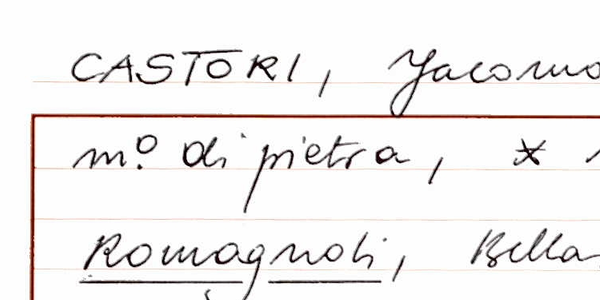 CASTORI, Jacomo
m.º di pietra, *
Romagnoli, Bella